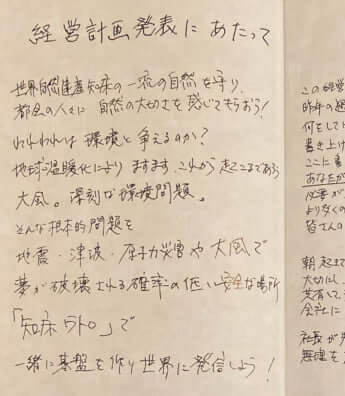 経営計画発表にあたって
世界自然遺産知床の一流の自然を守り、
都会の人々に自然の大切さを感じてもらおう!
われわれは環境と争えるのか?
地球温暖化によりますます、これから起こるであろう
大風。深刻な環境問題。
そんな根本的問題を
地震・津波・原子力災害や大風で
夢が破壊される確率の低い安全な場所
「知床ウトロ」で
一緒に基盤を作り世界に発信しよう!
この経営
昨年の
何をして
書き上げ
ここに書
あなたが
必要が
より多くの
皆さんの
朝起きて
大切に
共有して
会社に
社長が
無理を